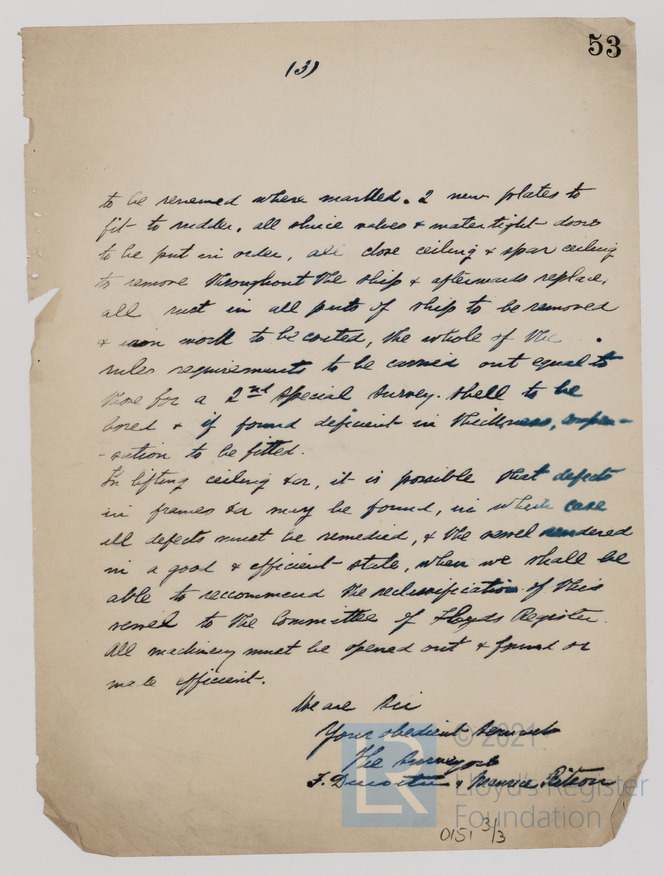 53
(3)
to be renewed where marked. 2 new plates to
fit to rudder. all sluice valves & watertight doors
to be put in order, all close ceiling & spar ceiling
to remove throughout the ship & afterwards replace,
all rust in all parts of ship to be removed
& iron work to be coated, the whole of the
rules requirements to be carried out equal to
those for a 2nd Special Survey. Shell to be
bored & if found deficient in thickness, compen-
-sation to be fitted.
In lifting ceiling &or, it is possible that defects
in frames &or may be found, in which case
all defects must be remedied, & the vessel rendered
in a good & efficient state, when we shall be
able to recommend the reclassification of this
vessel to the Committee of Lloyds Register.
All machinery must be opened out & found or
made efficient.
We are Sir
Your obedient Servants
The Surveyors
F. & Maurice
0151 3/3
© 2021
Lloyd's Register
Foundation
LR